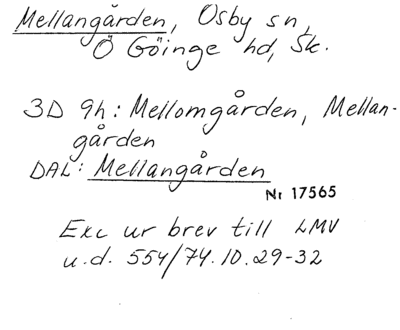 Mellangården, Osby sn,
Ö Göinge hd, Sk.
3D 9h: Mellomgården, Mellan-
gården
DAL: Mellangården
Nr 17565
Exc ur brev till LMV
u.d. 554/74.10.29-32